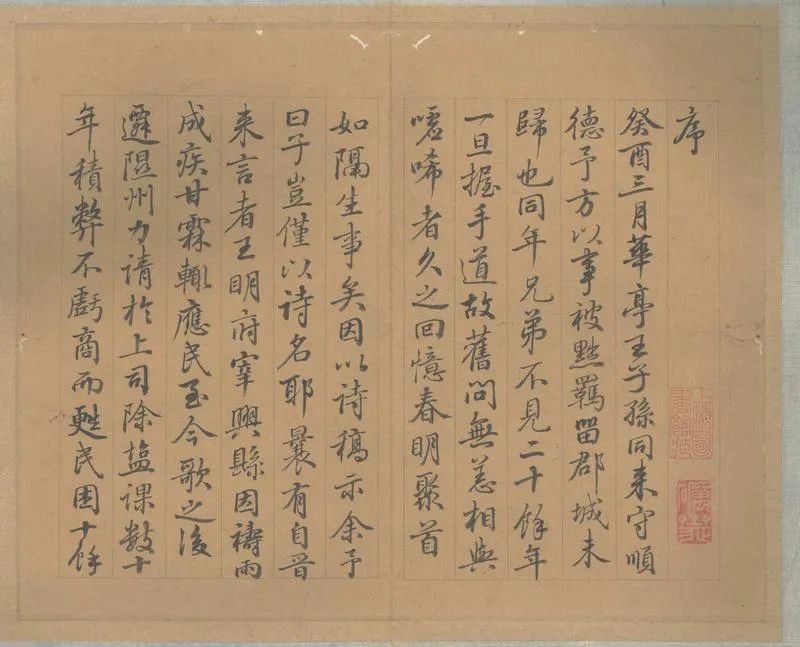 序
癸酉三月華亭王子孫同来守順
德予方以事被點羈留郡城未
歸也同年兄弟不見二十餘年
一旦握手道故舊問無恙相與
嘘唏者久之回憶春明聚首
如隔生事矣因以诗稿示余予
曰子豈僅以诗名耶曩有自晋
来言者王明府宰興縣因禱雨
成疾甘霖輒應民至今歌之後
遷隰州力请於上司除盐课数十
年積弊不虧商而甦民困十餘